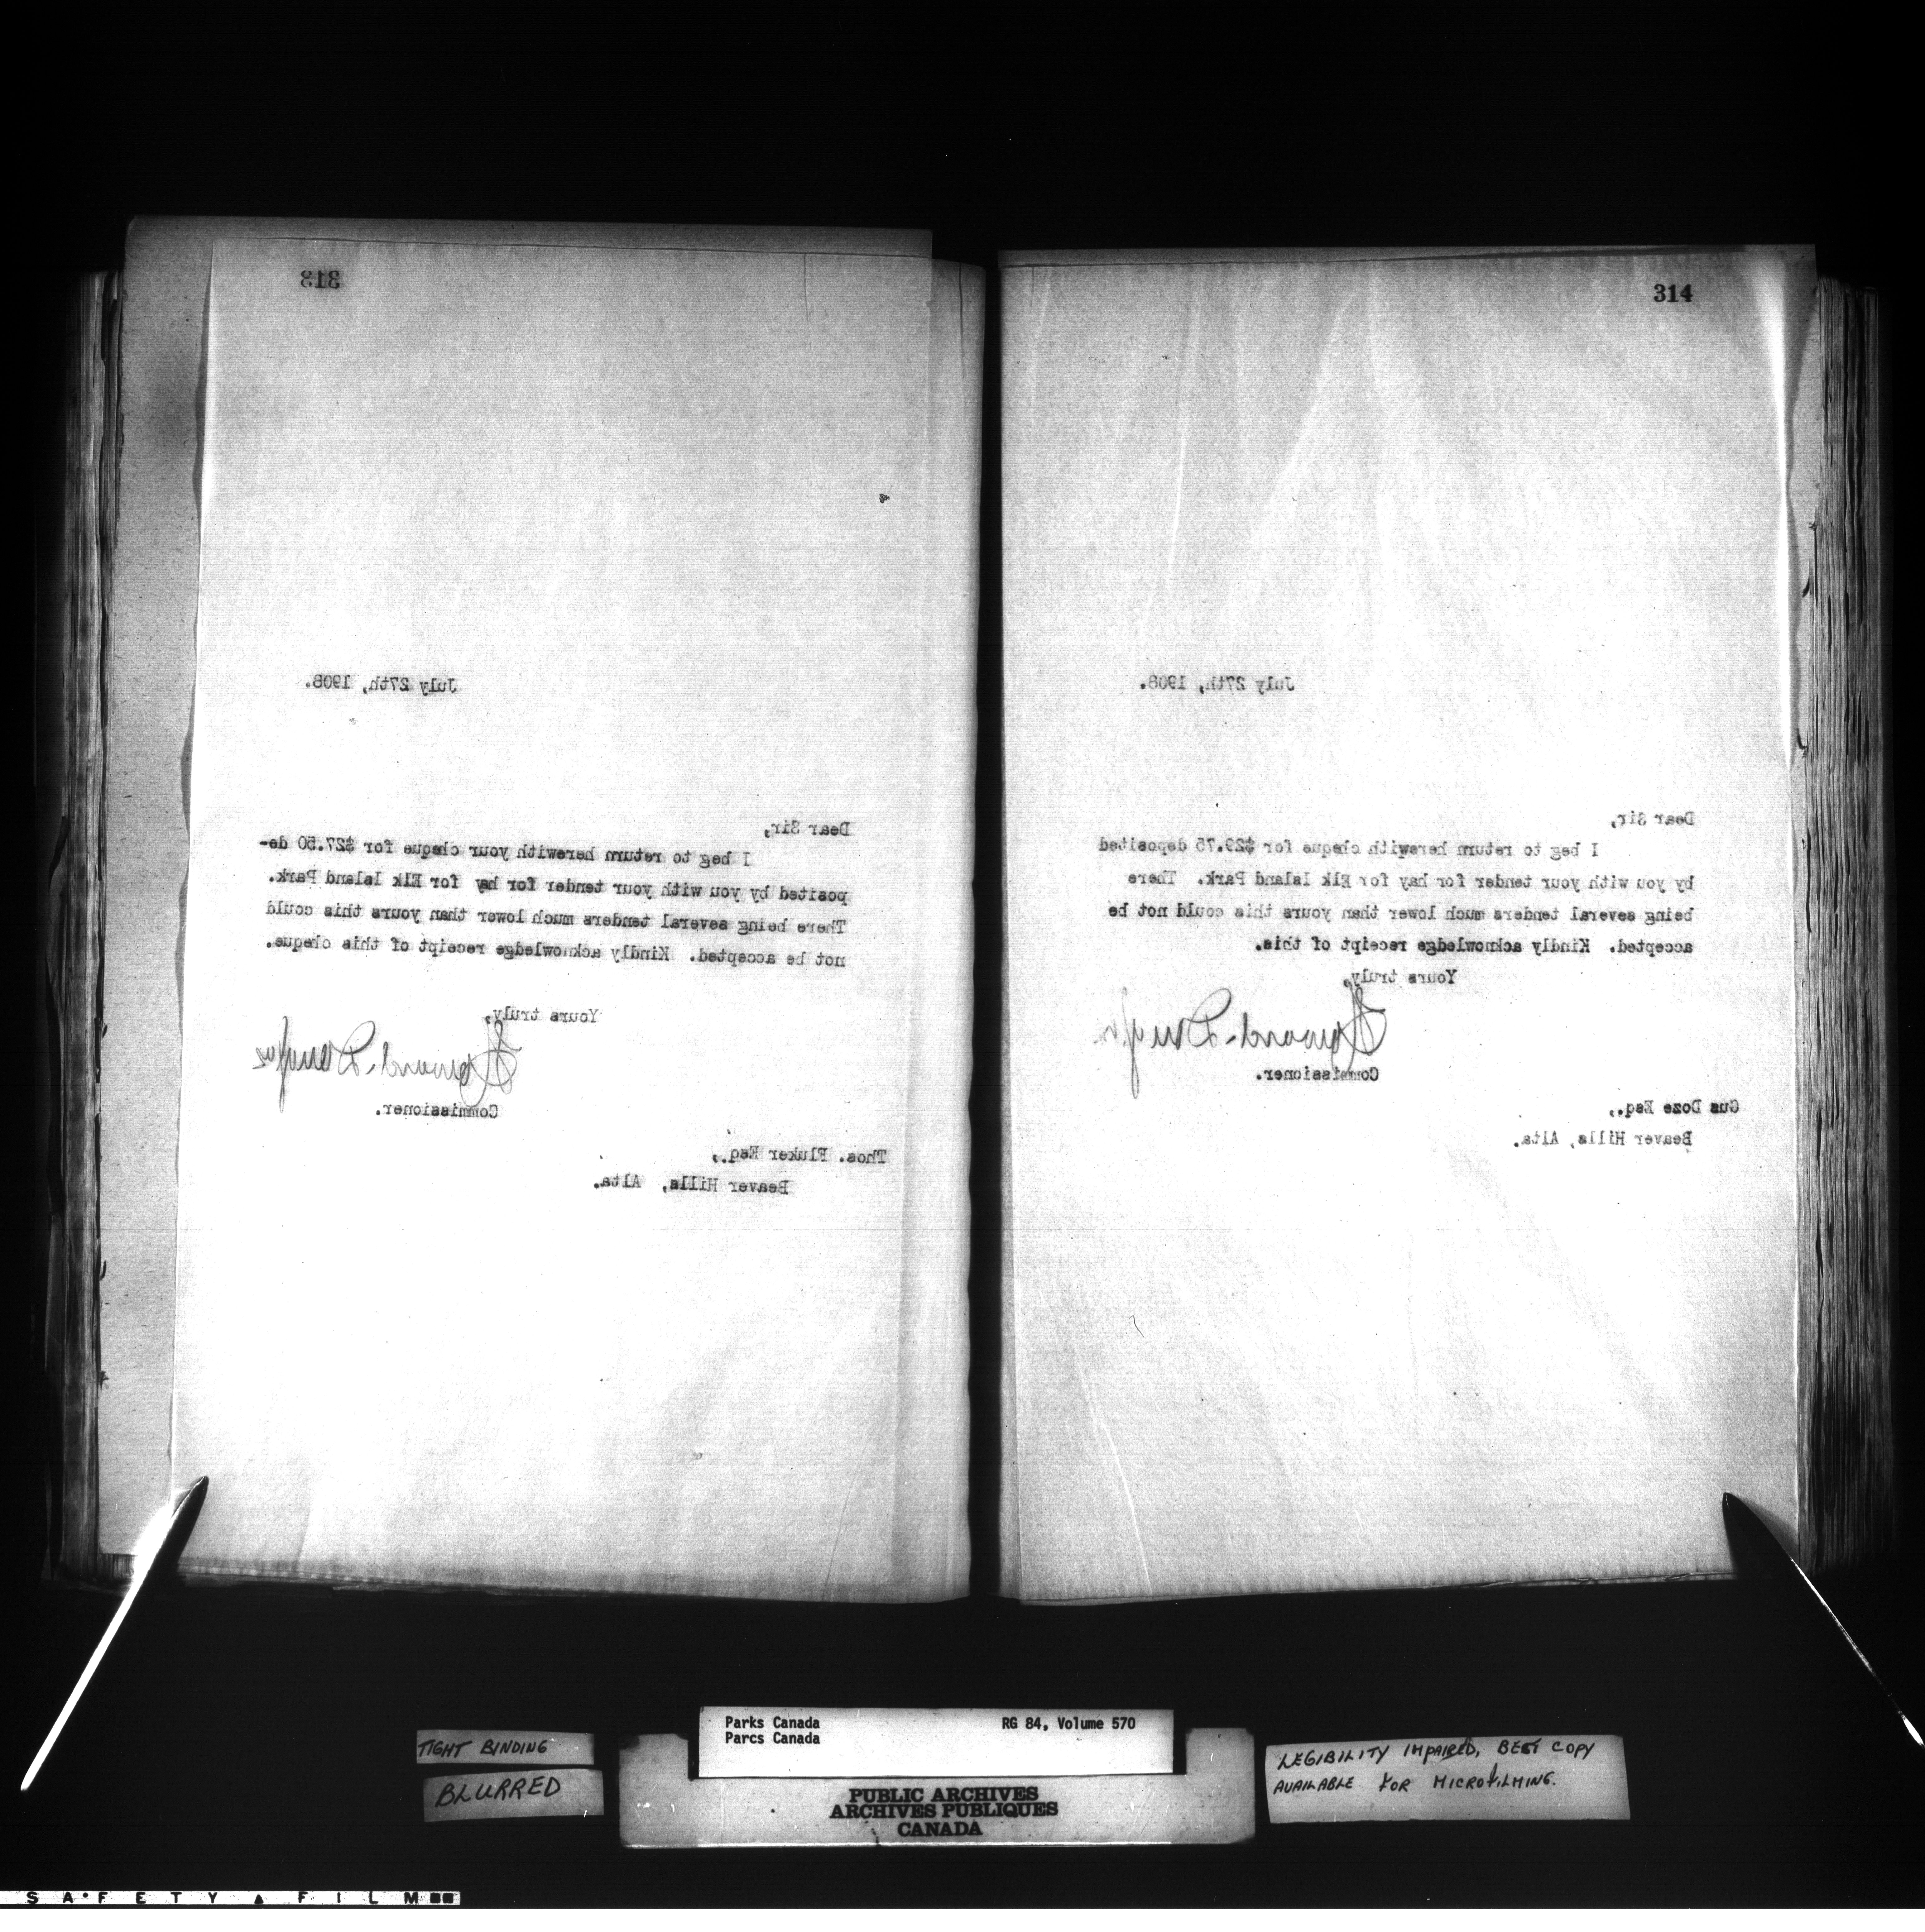 313
July 27th, 1908.
Dear Sir,
I beg to return herewith your cheque for $27.50 de-
posited by you with your tender for hay for Elk Island Park.
There being several tenders much lower than yours this could
not be accepted. Kindly acknowledge receipt of this cheque.
Yours truly,
Howard Douglas
Commissioner.
Thos. Fluker Esq.,
Beaver Hills, Alta.
314
July 27th, 1908.
Dear Sir,
I beg to return herewith cheque for $29.75 deposited
by you with your tender for hay for Elk Island Park. There
being several tenders much lower than yours this could not be
accepted. Kindly acknowledge receipt of this.
Yours truly,
Howard Douglas
Commissioner.
Gus Doze Esq.,
Beaver Hills, Alta.
TIGHT BINDING
BLURRED
Parks Canada
Parcs Canada
RG 84, Volume 570
PUBLIC ARCHIVES
ARCHIVES PUBLIQUES
CANADA
LEGIBILITY IMPAIRED, BEST COPY
AVAILABLE FOR MICROFILMING.
SAFETY FILM